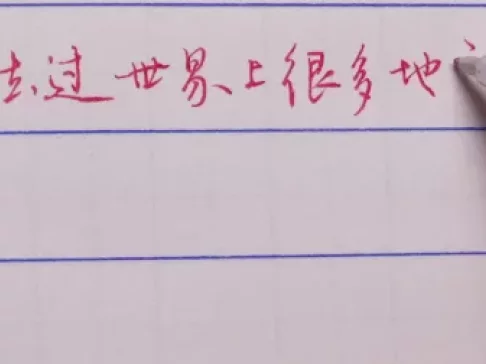 去过世界上很多地